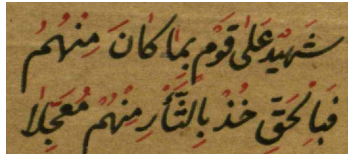 شَهِيْدٌ عَلٰى قَوْمٍ بِمَا كَانَ مِنْهُمُ
فَبِالْحَقِّ خُذْ بِالثَّأْرِ مِنْهُمْ مُعَجَّلَا